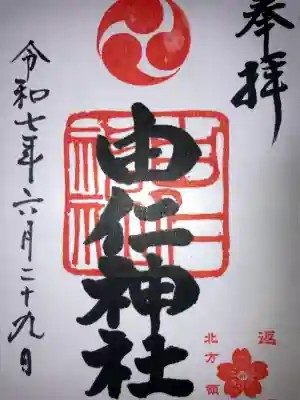 奉拝
由仁神社
令和七年六月二十九日
返
北方領